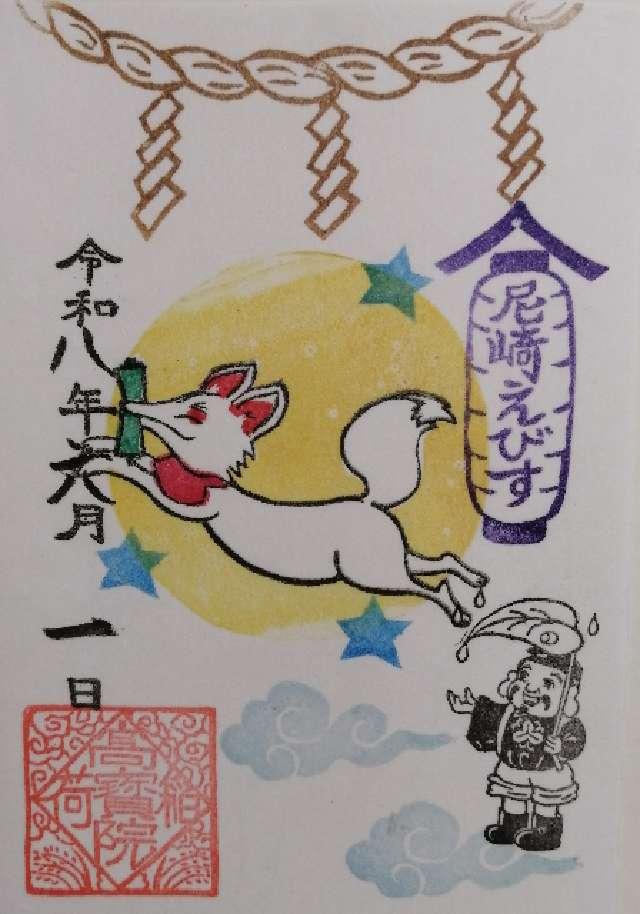 尼崎えびす
令和八年六月一日
高寳院
稲荷